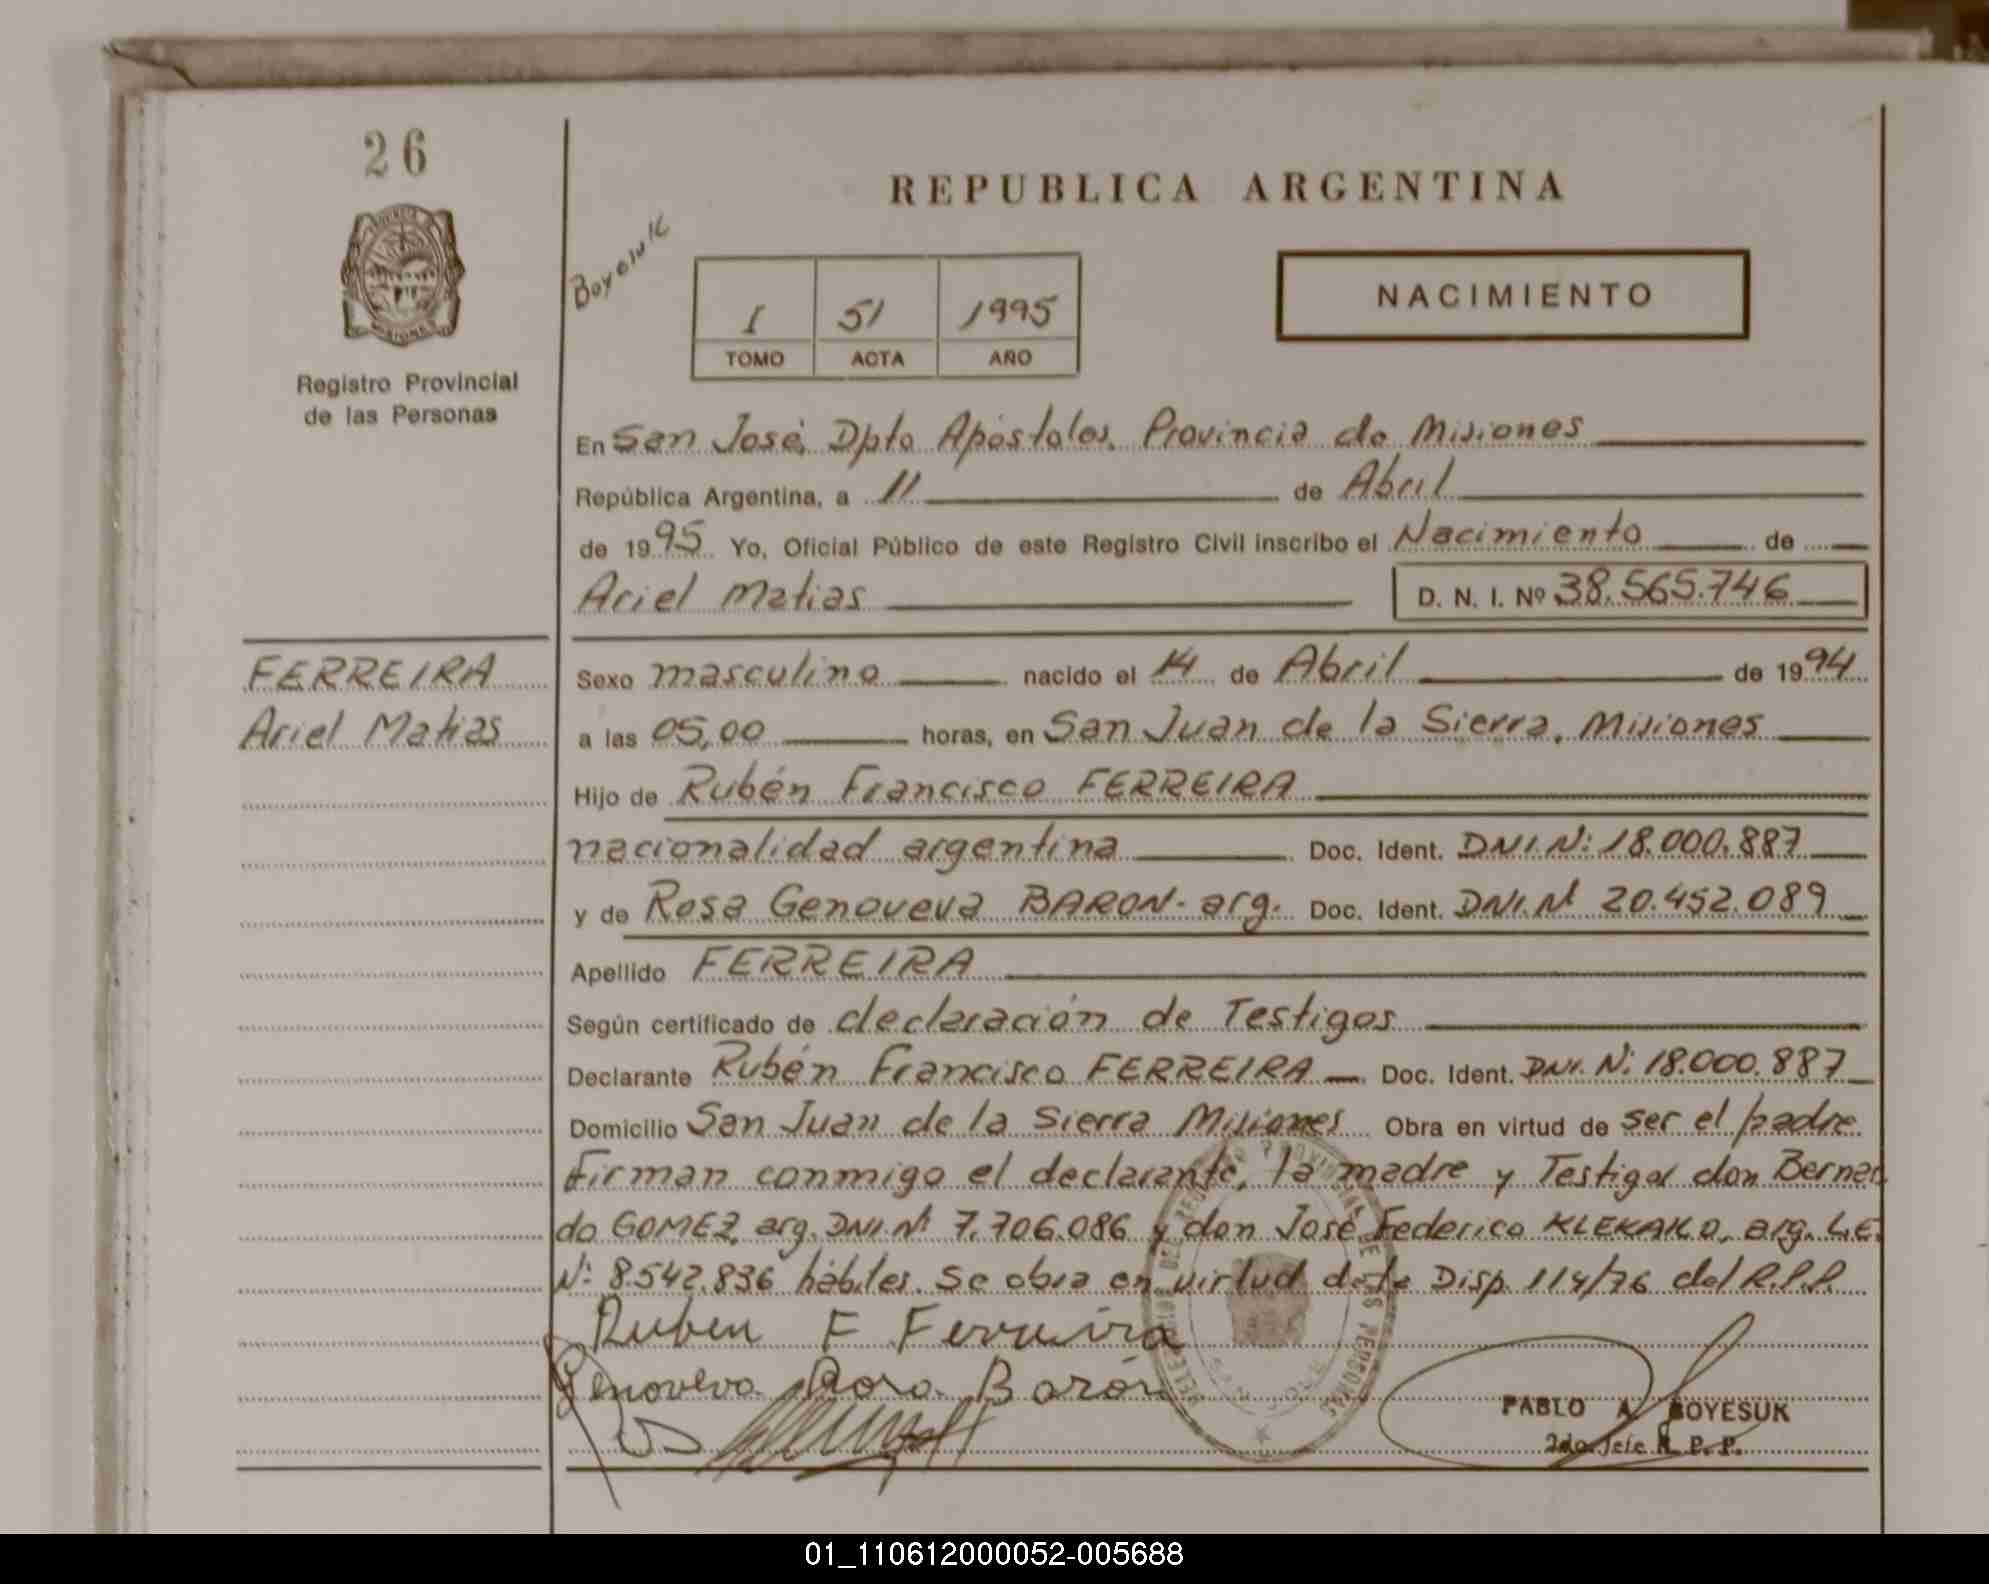 26
REPUBLICA ARGENTINA
Boyesuk
NACIMIENTO
I 51 1995
TOMO ACTA AÑO
Registro Provincial
de las Personas
En San José, Dpto Apóstoles, Provincia de Misiones
República Argentina, a 11 de Abril
de 1995 Yo, Oficial Público de este Registro Civil inscribo el Nacimiento de
Ariel Matias D. N. I. Nº 38.565.746
FERREIRA
Ariel Matias
Sexo masculino nacido el 14 de Abril de 1994
a las 05,00 horas, en San Juan de la Sierra, Misiones
Hijo de Rubén Francisco FERREIRA
nacionalidad argentina Doc. Ident. DNI.Nº 18.000.887
y de Rosa Genoveva BARON- arg. Doc. Ident. DNI.Nº 20.452.089
Apellido FERREIRA
Según certificado de declaración de Testigos
Declarante Rubén Francisco FERREIRA Doc. Ident. DNI. Nº 18.000.887
Domicilio San Juan de la Sierra Misiones Obra en virtud de ser el padre
Firman conmigo el declarante, la madre y Testigos don Bernar
do GOMEZ, arg. DNI.Nº 7.706.086 y don José Federico KLEKAILO, arg. L.E.
Nº 8.542.836 hábiles. Se obra en virtud de la Disp. 114/76 del R.P.P.
Ruben F Ferreira
Genoveva Rosa Barón
PABLO A. BOYESUK
2do. Jefe R. P. P.
01_110612000052-005688